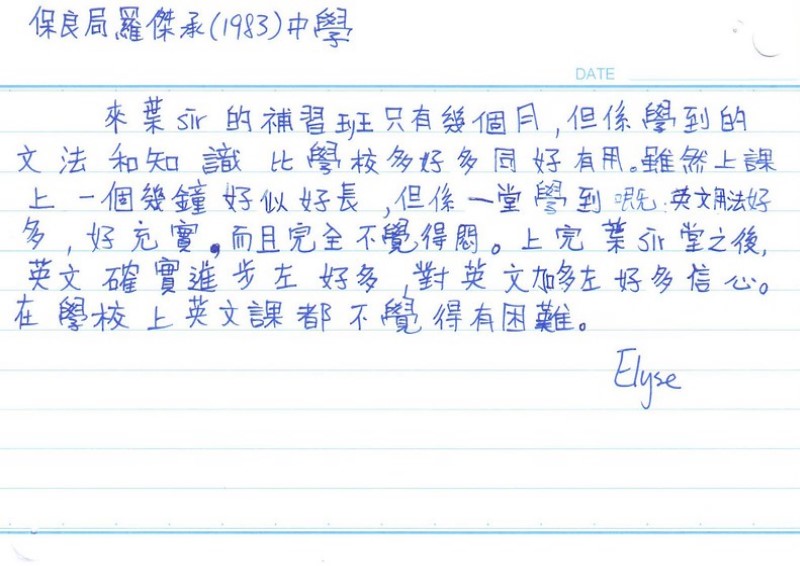 保良局羅傑承(1983)中學
DATE
來葉sir的補習班只有幾個月,但係學到的
文法和知識比學校多好多同好有用。雖然上課
上一個幾鐘好似好長,但係一堂學到嘅英文用法好
多,好充實。而且完全不覺得悶。上完葉sir堂之後,
英文確實進步左好多,對英文加多左好多信心。
在學校上英文課都不覺得有困難。
Elyse